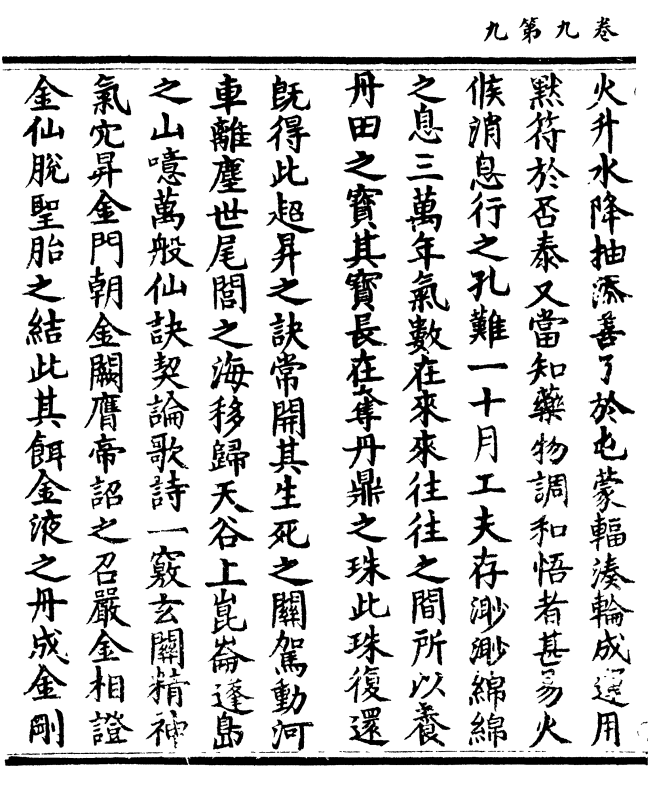 卷九第九
火升水降抽添善了於屯蒙輻湊輪成運用
默符於否泰又當知藥物調和悟者甚易火
候消息行之孔難一十月工夫存渺渺綿綿
之息三萬年氣數在來來往往之間所以養
丹田之寳其寳長在奪丹鼎之珠此珠復還
旣得此超昇之訣常開其生死之關駕動河
車離塵世尾閭之海移歸天谷上崑崙蓬島
之山噫萬般仙訣契論歌詩一竅玄關精神
氣穴昇金門朝金闕膺帝詔之召嚴金相證
金仙脫聖胎之結此其餌金液之丹成金剛